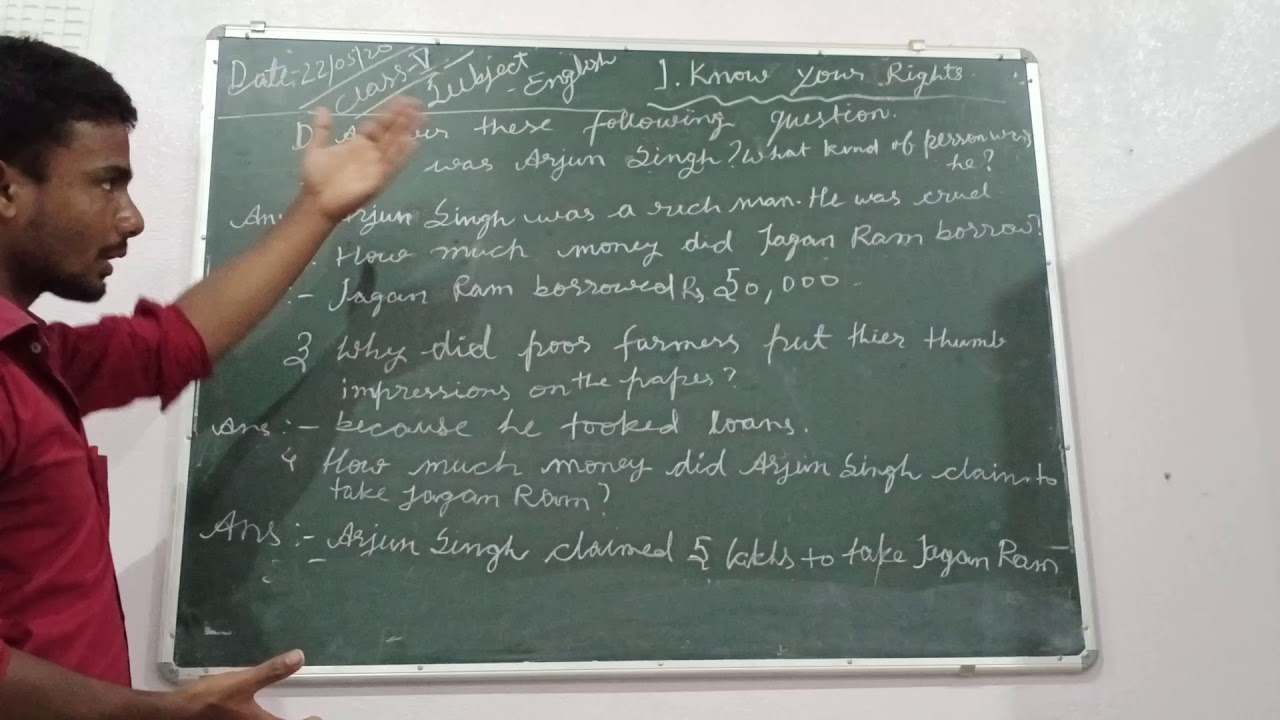 Date:- 22/05/20 Class-V Subject - English 1. Know your Rights
D these following question.
was Arjun Singh? What kind of person was he?
Arjun Singh was a rich man. He was cruel
How much money did Jagan Ram borrow?
:- Jagan Ram borrowed Rs 50,000.
3 Why did poor farmers put thier thumb
impressions on the paper?
Ans :- because he tooked loans.
4 How much money did Arjun Singh claim to
take Jagan Ram?
Ans :- Arjun Singh claimed 5 lakhs to take Jagan Ram